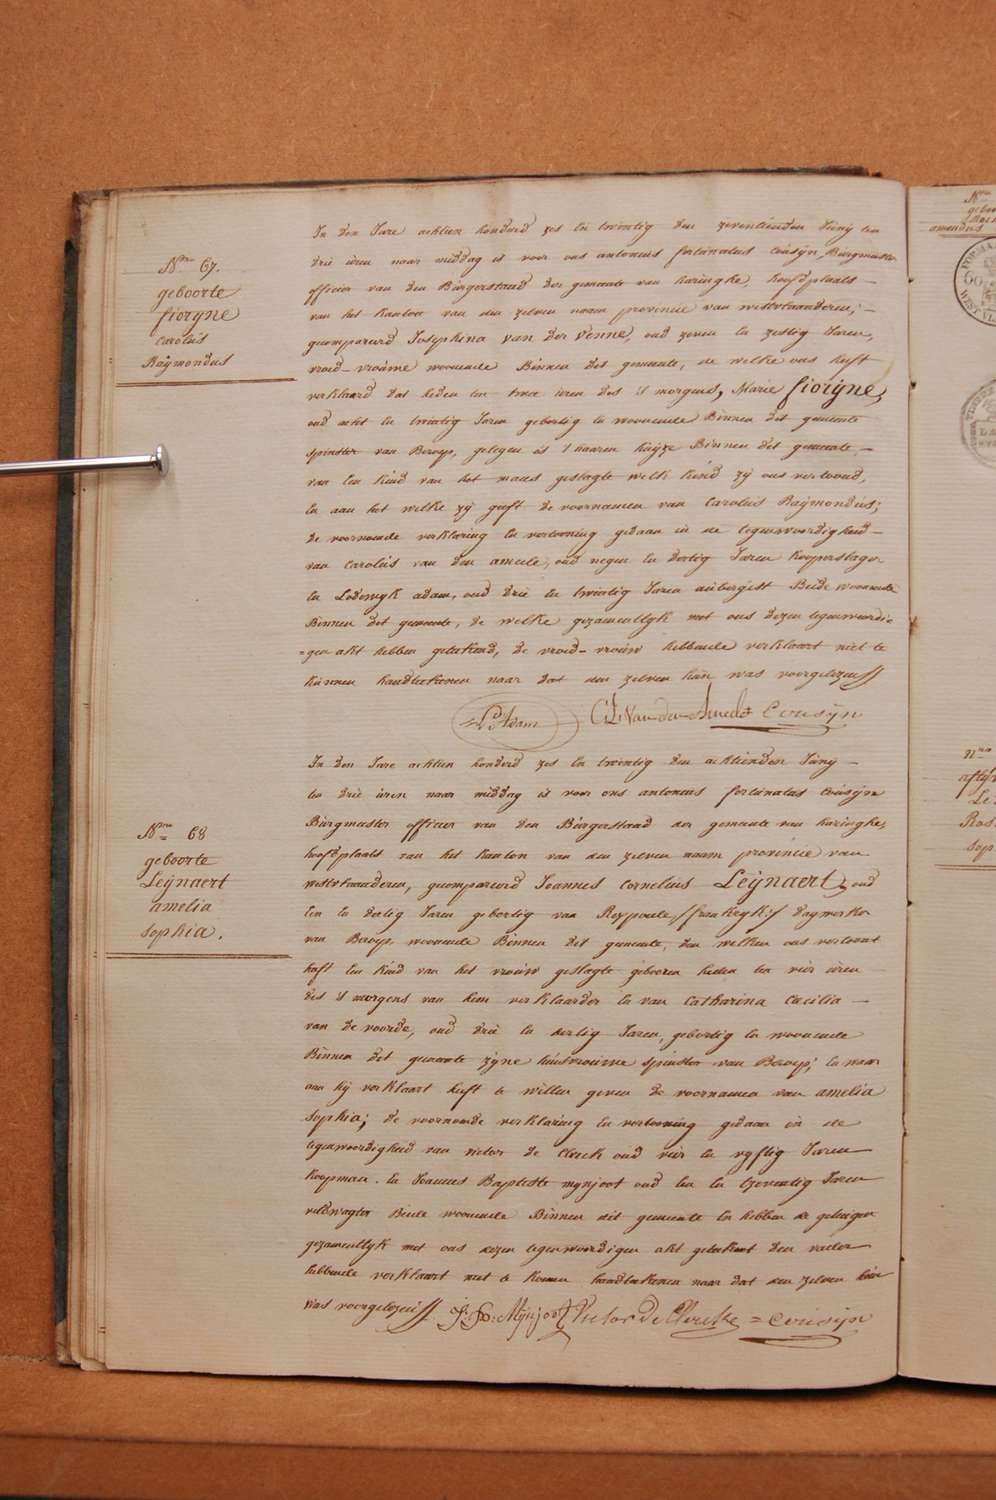 Nro 67.
geboorte
fiorÿne
carolus
Raÿmondus
In den Jare achtien honderd zes en twintig den zeventienden Junÿ ten
drie uren naar middag is voor ons antonius fortunatus Cousÿn, Burgmeester
officier van den Burgerstaad der gemeente van haringhe, hoofdplaats
van het kanton van den zelven naam provincie van westvlaanderen; –
gecompareerd Josephina van der Venne, oud zeven en zestig Jaren,
vroed-vrouwe woonende Binnen det gemeente, de welke ons heeft
verklaard dat heden ten twee uren des 's morgens, Marie fiorÿne,
oud acht en twintig Jaren gebortig en woonende Binnen det gemeente
spinster van Beroep, gelegen is 't haaren huÿze Binnen det gemeente, –
van Een kind van het mans geslagte welk kind zÿ ons vertoond,
en aan het welke zÿ geeft de voornamen van Carolus Raÿmondus;
de voornomde verklaring en vertooning gedaan in de tegenwoordigheid –
van Carolus van den ameele, oud negen en dertig Jaren kooperslager
en Lodewyk adam, oud drie en twintig Jaren aubergist Beide woonende
Binnen det gemeente, de welke gezamentlyk met ons dezen tegenwoordi-
=gen akt hebben geteekend, de vroed-vrouw hebbende verklaart niet te
kunnen handteekenen naar dat den zelven hun was voorgelezen
Ld Adam C: L: Van den Ameele Cousÿn
Nro 68
geboorte
Leÿnaert
amelia
sophia.
In den Jare achtien honderd zes en twintig den achtienden Junÿ –
ten drie uren naar middag is voor ons antonius fortunatus Cousÿn
Burgmeester officier van den Burgerstaad der gemeente van haringhe,
hoofdplaats van het kanton van den zelven naam provincie van
westvlaanderen, gecompareerd Joannes Cornelius Leÿnaert, oud
Een en dertig Jaren gebortig van Rexpoede /:frankryk:/ dagwerker
van Beroep, woonende Binnen det gemeente, den welken ons vertoont
heeft Een kind van het vrouw geslagte gebooren heden ten vier uren
des 's morgens van hem verklaarder en van Catharina Cæcilia –
van de voorde, oud drie en dertig Jaren, gebortig en woonende
Binnen det gemeente zÿne huisvrouwe spinster van Beroep; en naar
aan hÿ verklaart heeft te willen geven de voornamen van amelia
sophia; de voornomde verklaring en vertooning gedaan in de
tegenwoordigheid van victor de Clerck oud vier en vyftig Jaren
koopman. en Joannes Baptiste mynjoot oud Een en tzeventig Jaren
veldwagter Beide woonende Binnen dit gemeente En hebben de getuigen
gezamentlyk met ons dezen tegenwoordigen akt geteekent den vader
hebbende verklaart niet te konnen handteekenen naar dat den zelven hun
was voorgelezen J: B: Mijnjoot Victor De Clercke = Cousÿn